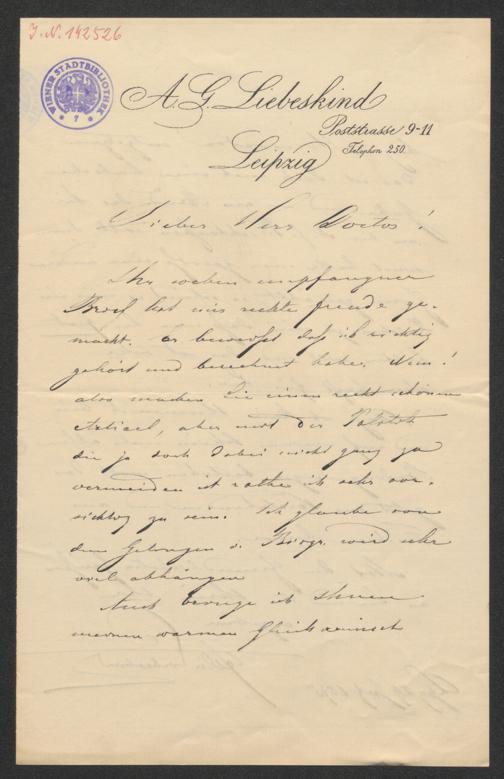 J.N. 142526
WIENER STADTBIBLIOTHEK
* 7 *
A. G. Liebeskind
Poststrasse 9-11
Telephon 250
Leipzig
Lieber Herr Doctor!
Ihr soeben empfangener
Brief hat mir rechte Freude ge-
macht. Er beweist daß ich richtig
gehört und berechnet habe. Nun!
also machen Sie einen recht schönen
Artikel, aber mit der
die ja doch dabei nicht ganz zu
vermeiden ist rathe ich sehr vor-
sichtig zu sein. Ich glaube von
dem Gelingen d. Biogr. wird sehr
viel abhängen
Auch bringe ich Ihnen
meinen warmen Glückwunsch